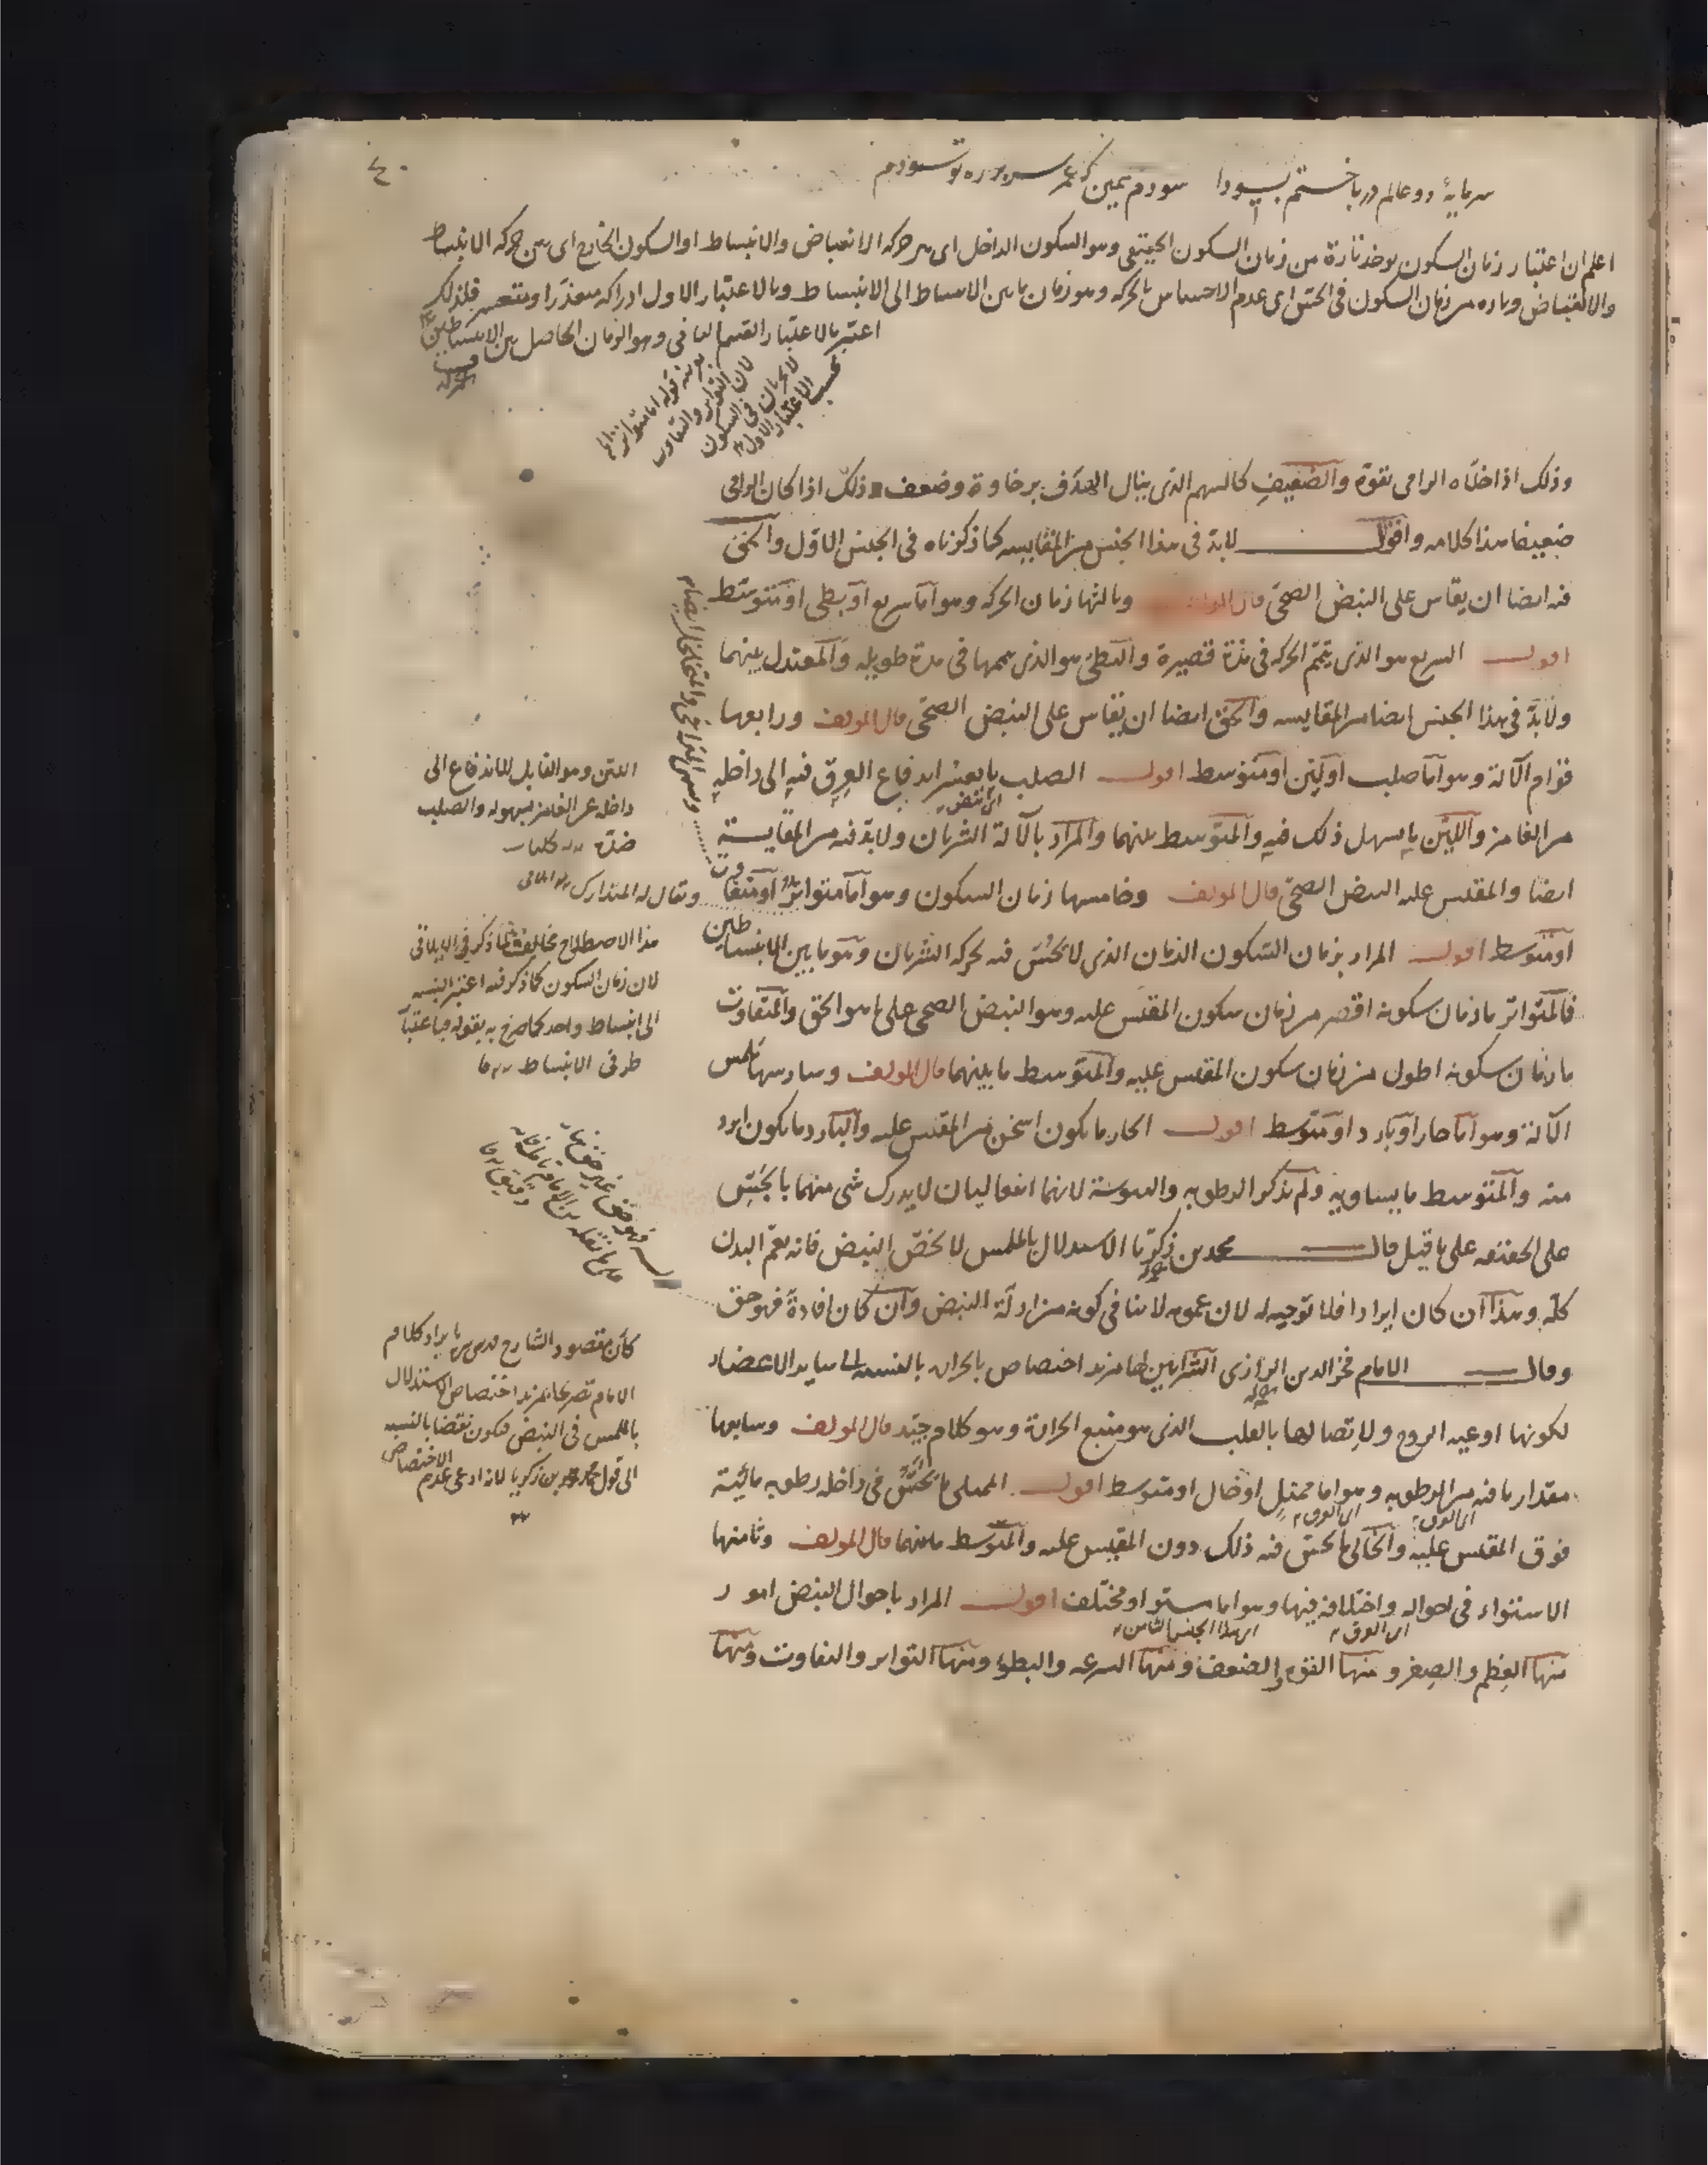 سرمایهٔ دو عالم در باختم بسودا سودم همین که عمر
اعلم ان اعتبار زمان السكون يوخذ تارة من زمان السكون الحقيقى وهو السكون الداخل اى بين حركه الانقباض والانبساط او السكون الخارج اى بين حركه الانبساط
والانقباض وتاره من زمان السكون فى الحس اى عدم الاحساس بالحركه وهو زمان ما بين الانبساط الى الانبساط وبالاعتبار الاول ادراكه متعذرا ومتعسر فلذلك
اعتبر بالاعتبار القسم الثانى وهو الزمان الحاصل بين الانبساطين
وذلك اذا خلاه الرامى بقوة والضعيف كالسهم الذى ينال الهدف برخاوة وضعف وذلك اذا كان الرامى
ضعيفا هذا كلامه واقول لابد فى هذا الجنس من المقايسه كما ذكرناه فى الجنس الاول والحق
فيه ايضا ان يقاس على النبض الصحى قال المولف وثالثها زمان الحركه وهو اما سريع او بطى او متوسط
اقول السريع هو الذى يتمم الحركه فى مدة قصيرة والبطى هو الذى يتممها فى مدة طويله والمعتدل بينهما
ولابد فى هذا الجنس ايضا من المقايسه والحق ايضا ان يقاس على النبض الصحى قال المولف ورابعها
قوام الآلة وهو اما صلب او لين او متوسط اقول الصلب ما يعسر اندفاع العرق فيه الى داخله
من الغامز واللين ما يسهل ذلك فيه والمتوسط بينهما والمراد بالآلة الشريان ولابد فيه من المقايسة
ايضا والمقيس عليه النبض الصحى قال المولف وخامسها زمان السكون وهو اما متواتر او متفاوت
او متوسط اقول المراد بزمان السكون الزمان الذى لا يحس فيه بحركه الشريان وهو ما بين الانبساطين
فالمتواتر ما زمان سكونه اقصر من زمان سكون المقيس عليه وهو النبض الصحى على ما هو الحق والمتفاوت
ما زمان سكونه اطول من زمان سكون المقيس عليه والمتوسط ما بينهما قال المولف وسادسها ملمس
الآلة وهو اما حار او بارد او متوسط اقول الحار ما يكون اسخن من المقيس عليه والبارد ما يكون ابرد
منه والمتوسط ما يساويه ولم يذكر الرطوبه واليبوسة لانهما انفعاليان لا يدرك شى منهما بالحس
على الحقيقه على ما قيل قال محمد بن زكريا الاستدلال بالملمس لا يخص النبض فانه يعم البدن
كله وهذا ان كان ايرادا فلا توجيه له لان عمومه لا ينافى كونه من ادلة النبض وان كان افادة فهو حق
وقال الامام فخر الدين الرازى الشرايين لها مزيد اختصاص بالحرارة بالنسبه الى ساير الاعضاء
لكونها اوعيه الروح ولاتصالها بالقلب الذى هو منبع الحرارة وهو كلام جيد قال المولف وسابعها
مقدار ما فيه من الرطوبه وهو اما ممتلى او خال او متوسط اقول الممتلى ما يحس فى داخله رطوبه مائية
فوق المقيس عليه والخالى ما يحس فيه ذلك دون المقيس عليه والمتوسط ما بينهما قال المولف وثامنها
الاستواء فى احواله واختلافه فيها وهو اما مستو او مختلف اقول المراد باحوال النبض امور
منها العظم والصغر ومنها القوه والضعف ومنها السرعه والبطؤ ومنها التواتر والتفاوت ومنها
اللين وهو القابل للاندفاع الى
داخله عن الغامز بسهوله والصلب
ضده
ويقال له المتدارك
هذا الاصطلاح مخالف لما ذكر فى الايلاقى
لان زمان السكون كما ذكر فيه اعتبر بالنسبه
الى انبساط واحد كما صرح به بقوله
طرفى الانبساط
كأن مقصود الشارح بايراد كلام
الامام تصريحا بمزيد اختصاص الاستدلال
بالملمس فى النبض فيكون نقضا بالنسبه
الى قول محمد بن زكريا لانه ادعى عدم الاختصاص